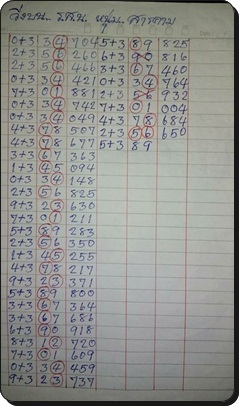 วิ่งบน
0+3 34 704 5+3 89 825
2+3 56 260 6+3 90 816
2+3 56 466 3+3 67 460
0+3 34 421 0+3 34 764
7+3 01 881 2+3 56 932
0+3 34 742 7+3 01 004
0+3 34 049 4+3 78 684
4+3 78 507 2+3 56 650
4+3 78 677 5+3 89
3+3 67 363
1+3 45 094
0+3 34 148
2+3 56 825
9+3 23 630
7+3 01 211
5+3 89 283
2+3 56 350
1+3 45 255
4+3 78 217
9+3 23 371
5+3 89 800
3+3 67 364
3+3 67 686
6+3 90 918
8+3 12 720
7+3 01 609
0+3 34 459
9+3 23 737